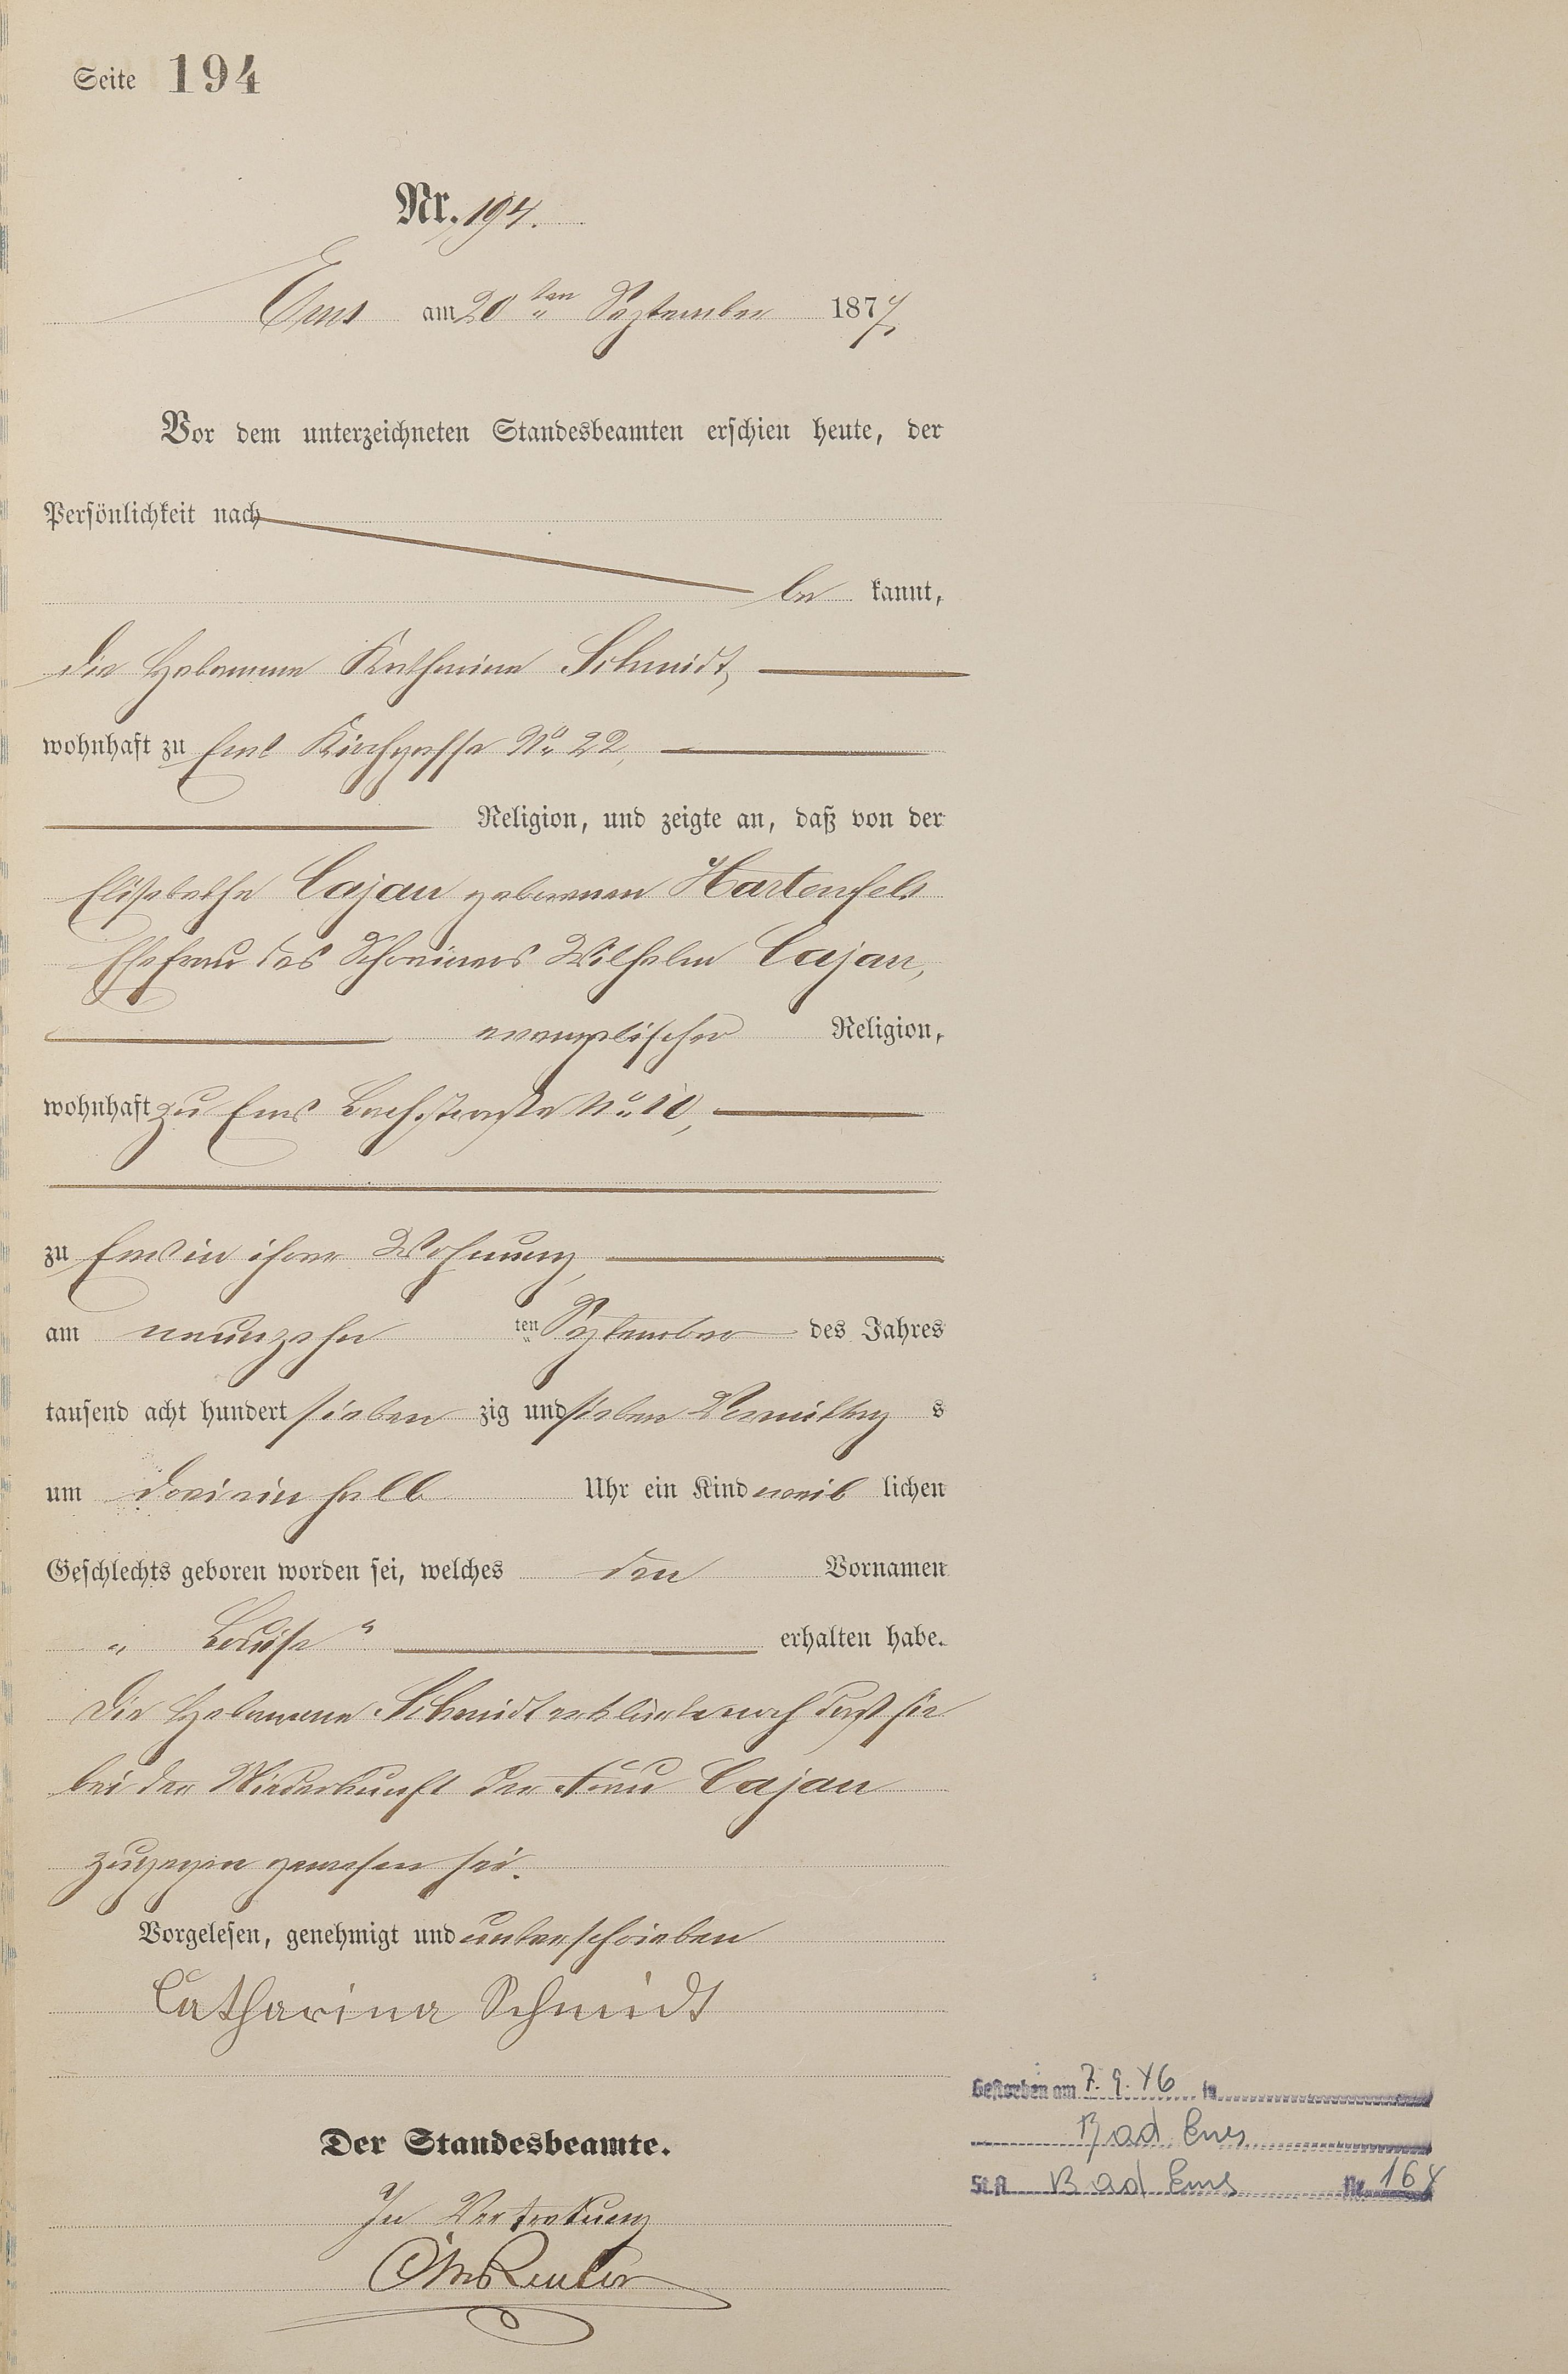 Seite 194
Nr. 194.
Ems am 20ten September 1877.
Vor dem unterzeichneten Standesbeamten erschien heute, der
Persönlichkeit nach
be kannt,
die Hebamme Katharina Schmidt,
wohnhaft zu Ems Kirchgasse No 22,
Religion, und zeigte an, daß von der
Elisabethe Cajan geborenen Hartenfels
Ehefrau des Schreiners Wilhelm Cajan,
evangelischer Religion,
wohnhaft zu Ems Bachstraße No 10,
zu Ems in ihrer Wohnung,
am neunzehn ten September des Jahres
tausend acht hundert sieben zig und sieben Vormittag s
um dreieinhalb Uhr ein Kind weib lichen
Geschlechts geboren worden sei, welches den Vornamen
„ Louise “ erhalten habe.
Die Hebamme Schmidt erklärte noch daß sie
bei der Niederkunft der Frau Cajan
zugegen gewesen sei.
Vorgelesen, genehmigt und unterschrieben
Catharina Schmidt
Der Standesbeamte.
In Vertretung
Gestorben am 7. 9. 46 in
Bad Ems
St.A. Bad Ems Nr. 164